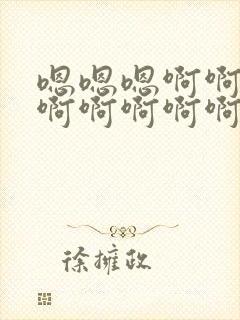 嗯嗯嗯啊啊
啊啊啊啊啊
徐擁政